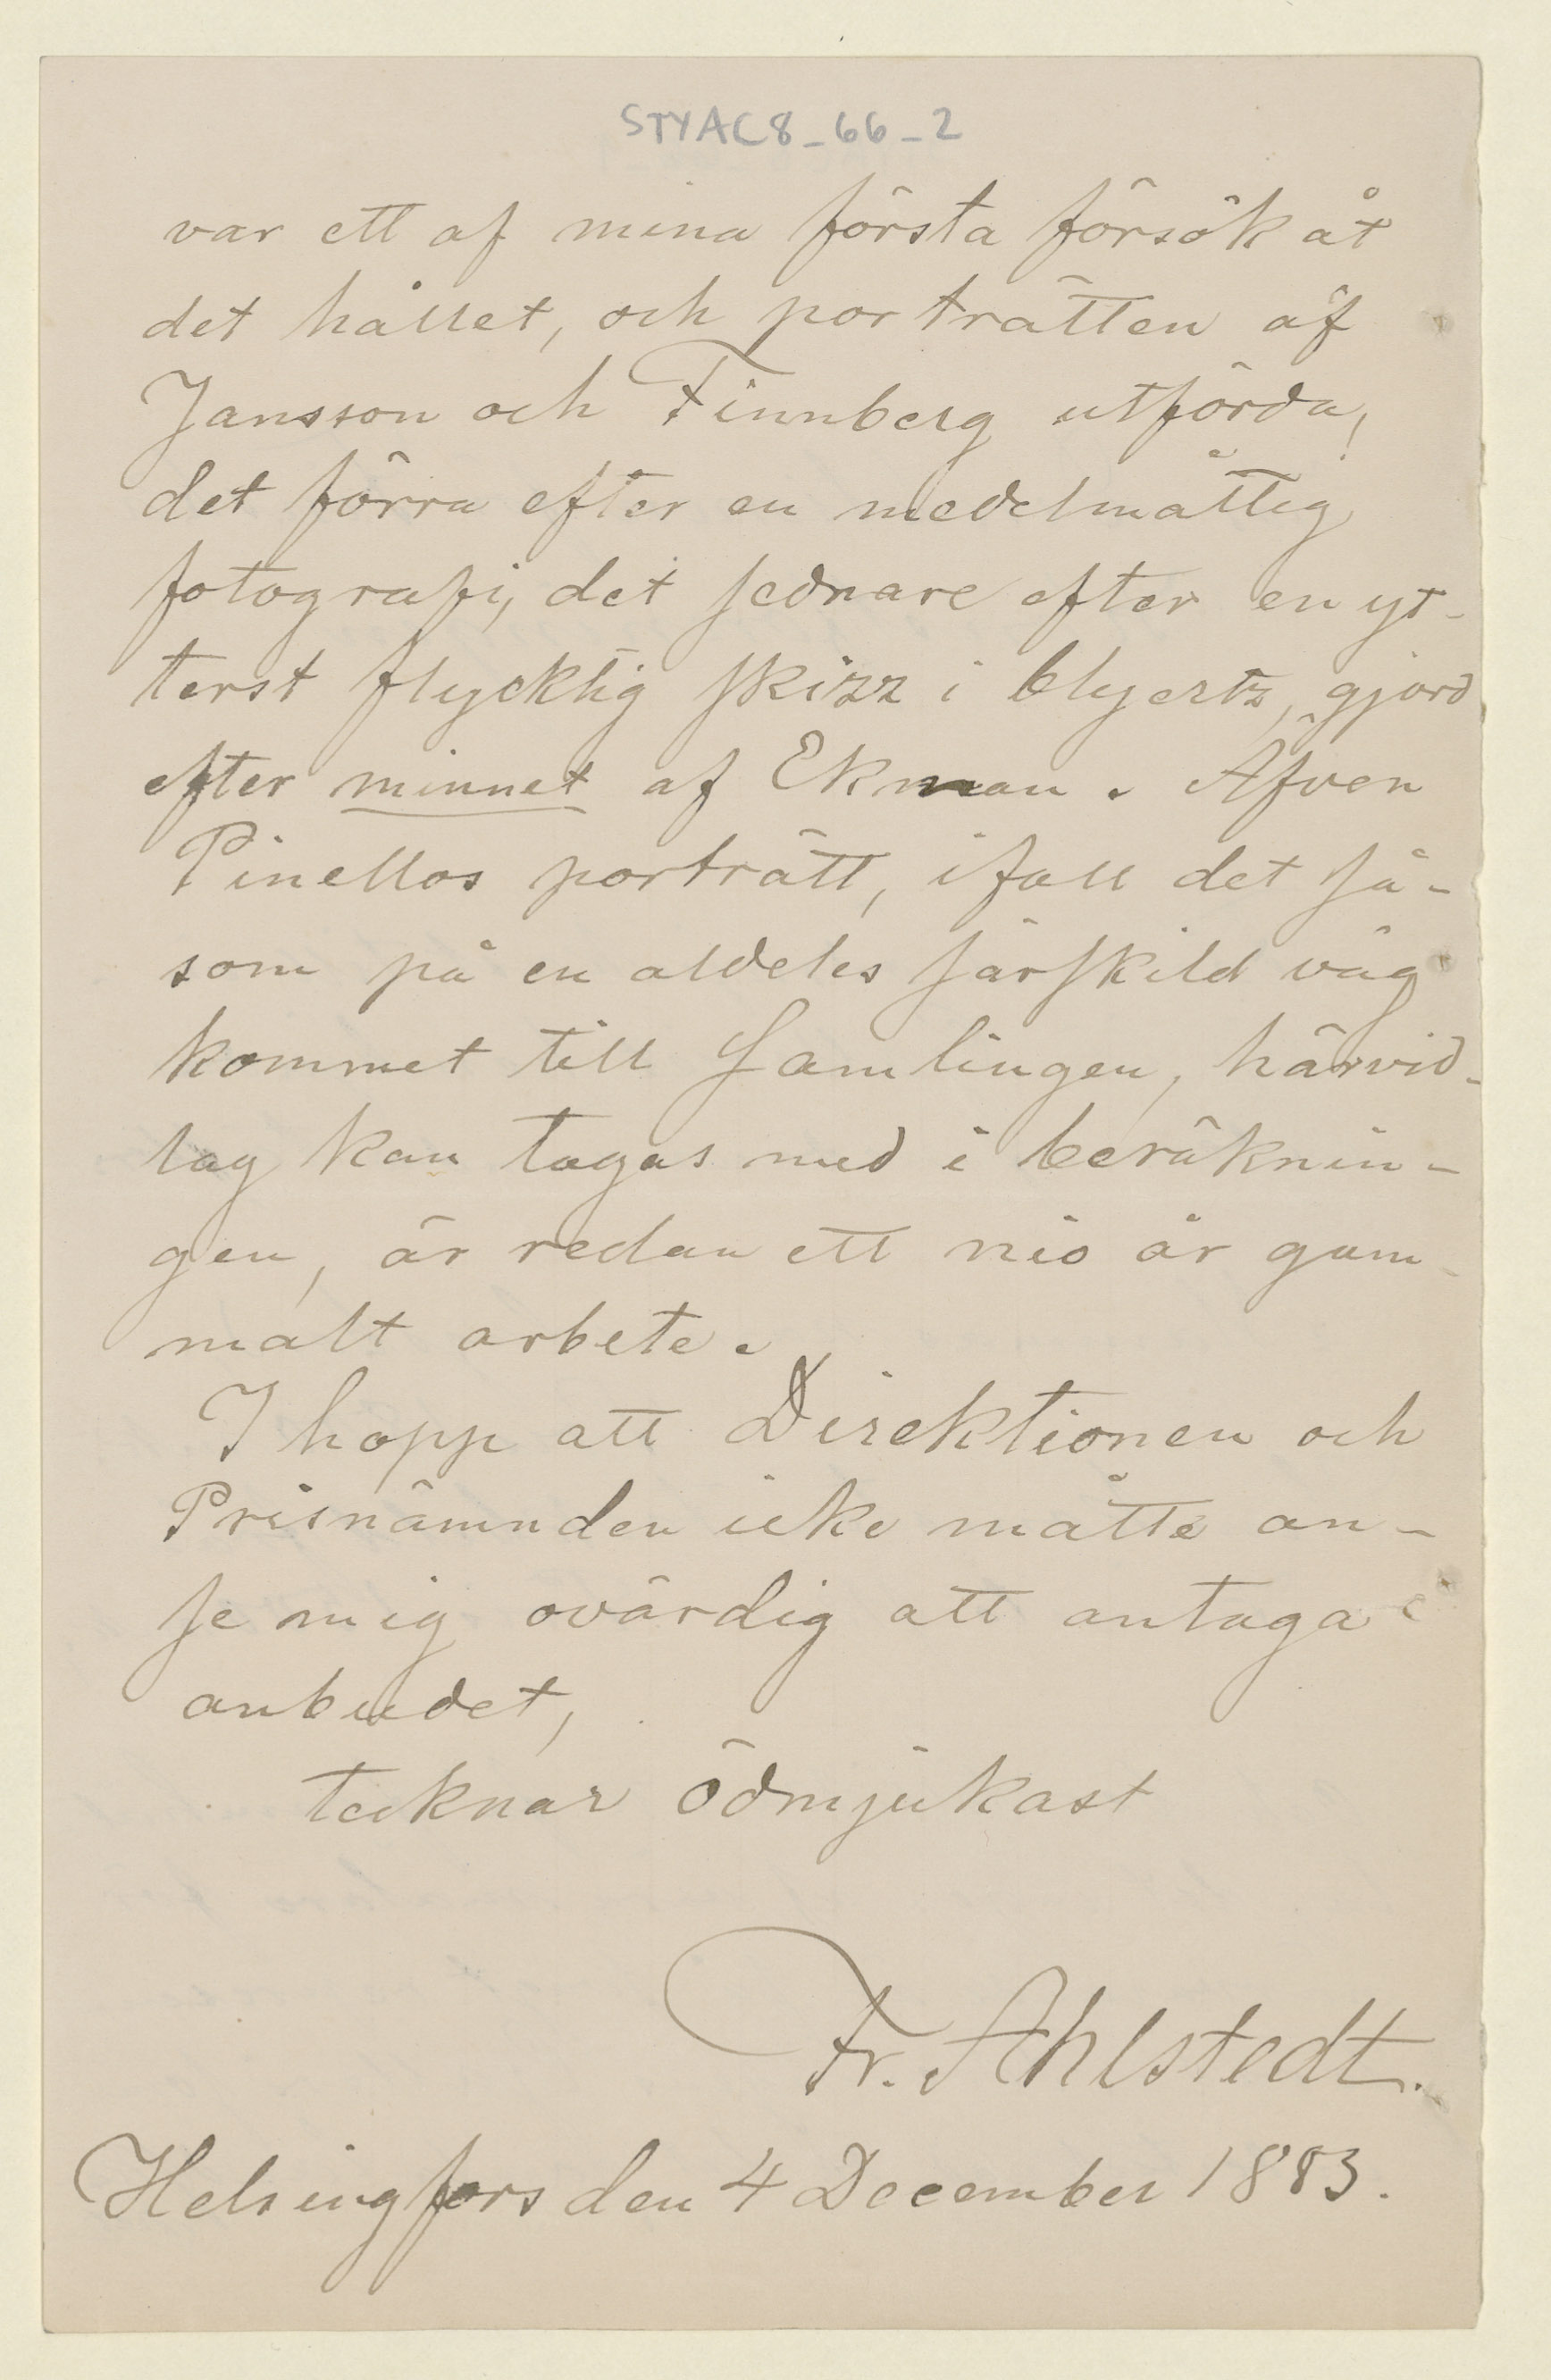 STYAC8_66_2
var ett af mina första försök åt
det hållet, och porträtten af
Jansson och Finnberg utförda,
det förra efter en medelmåttig
fotografi, det sednare efter en yt-
terst flycktig skizz i blyertz, gjord
efter minnet af Ekman. Äfven
Pinellos porträtt, ifall det så-
som på en aldeles särskild väg
kommet till Samlingen, härvid-
lag kan tagas med i beräknin-
gen, är redan ett nio år gam-
malt arbete.
I hopp att Direktionen och
Prisnämnden icke måtte an-
se mig ovärdig att antaga
anbudet,
tecknar ödmjukast
Fr. Ahlstedt.
Helsingfors den 4 December 1883.